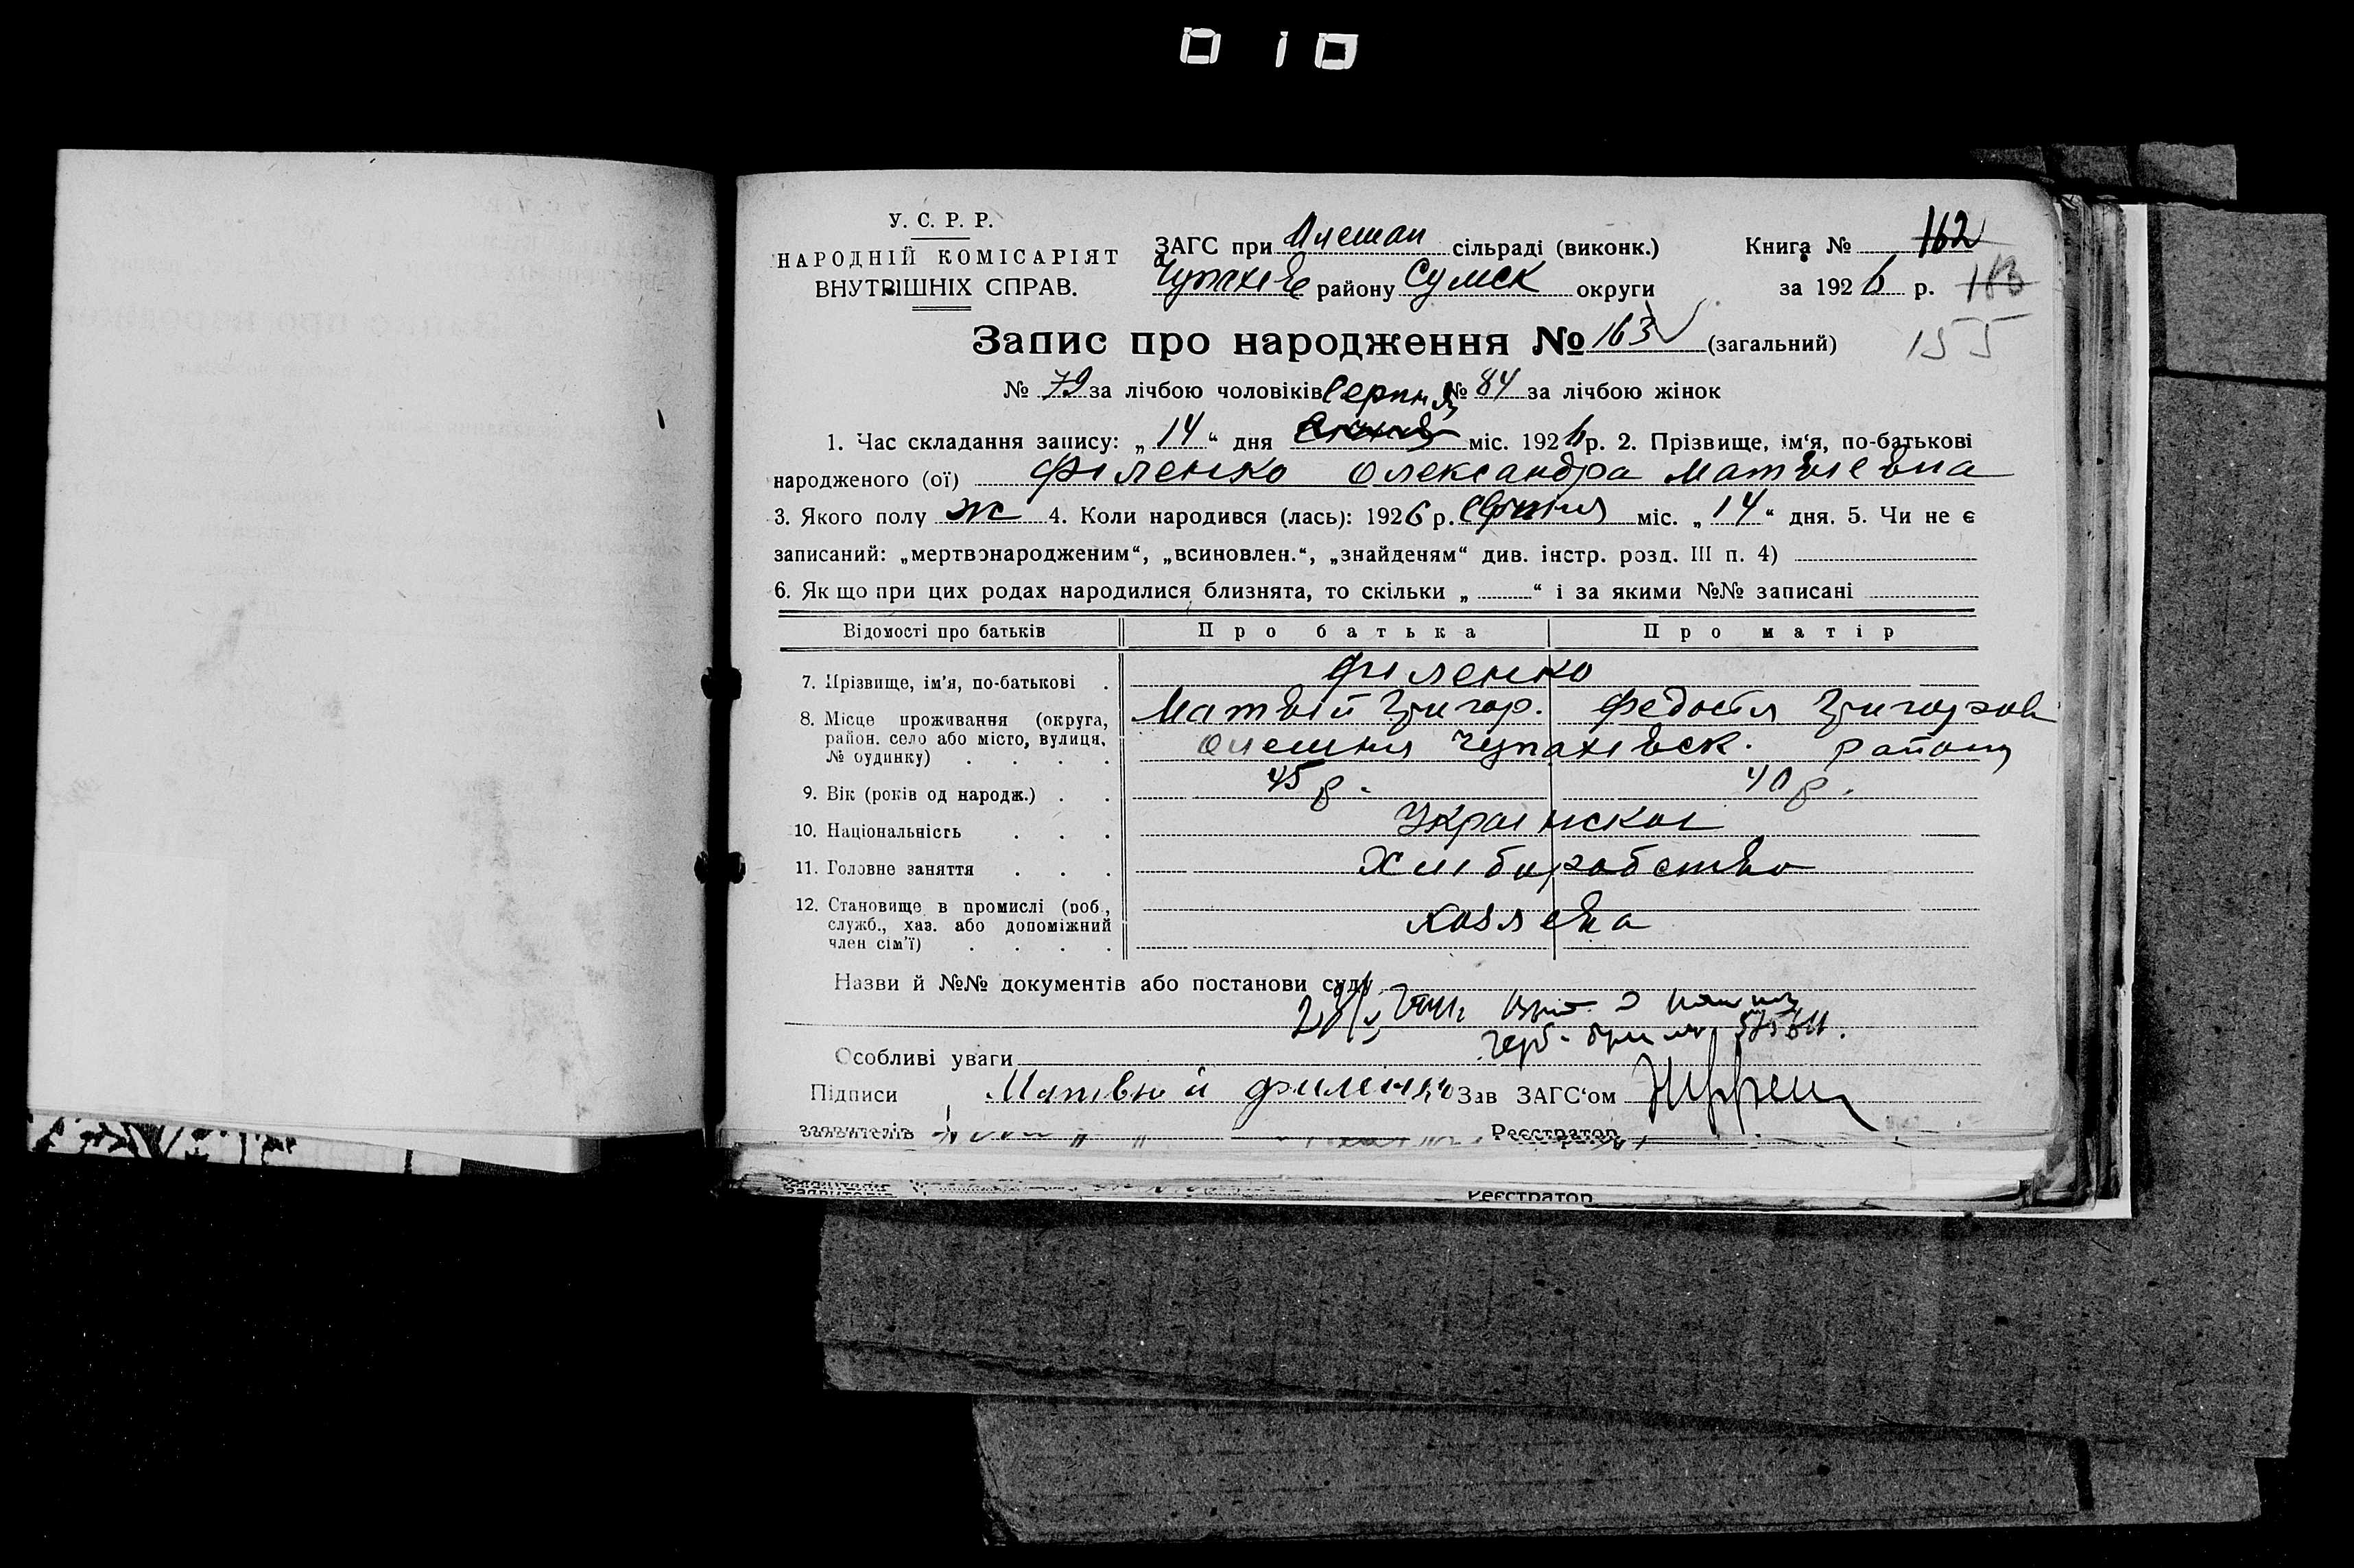 У. С. Р. Р.
НАРОДНІЙ КОМІСАРІЯТ
ВНУТРІШНІХ СПРАВ.
ЗАГС при Олешан сільраді (виконк.)
Чупахів району Сумск округи
Книга № 162
за 1926 р. 163
155
Запис про народження № 163 (загальний)
№ 79 за лічбою чоловіків № 84 за лічбою жінок
Серпня
1. Час складання запису: „14“ дня міс. 1926 р. 2. Прізвище, ім'я, по-батькові
народженого (ої) Філенко Олександра Матвіевна
3. Якого полу ж 4. Коли народився (лась): 1926 р. Серпня міс. „14“ дня. 5. Чи не є
записаний: „мертвонародженим“, „всиновлен.“, „знайденям“ див. інстр. розд. III п. 4)
6. Як що при цих родах народилися близнята, то скільки „ “ і за якими №№ записані
Відомості про батьків Про батька Про матір
7. Прізвище, ім'я, по-батькові . Філенко
Матвій Григор. Федосія Григоров
8. Місце проживання (округа,
район, село або місто, вулиця,
№ будинку) . . . .
Олешня Чупахівск. району
9. Вік (років од народж.) . . 45 р. 40 р.
10. Національність . . . Українскоі
11. Головне заняття . . . Хлібоработво
12. Становище в промислі (роб.,
служб., хаз. або допоміжний
член сім'ї) . . . .
Хозяева
Назви й №№ документів або постанови суду
Особливі уваги
Підписи Матвей Филенко Зав ЗАГС'ом
заявителів Реєстратор
Реєстратор